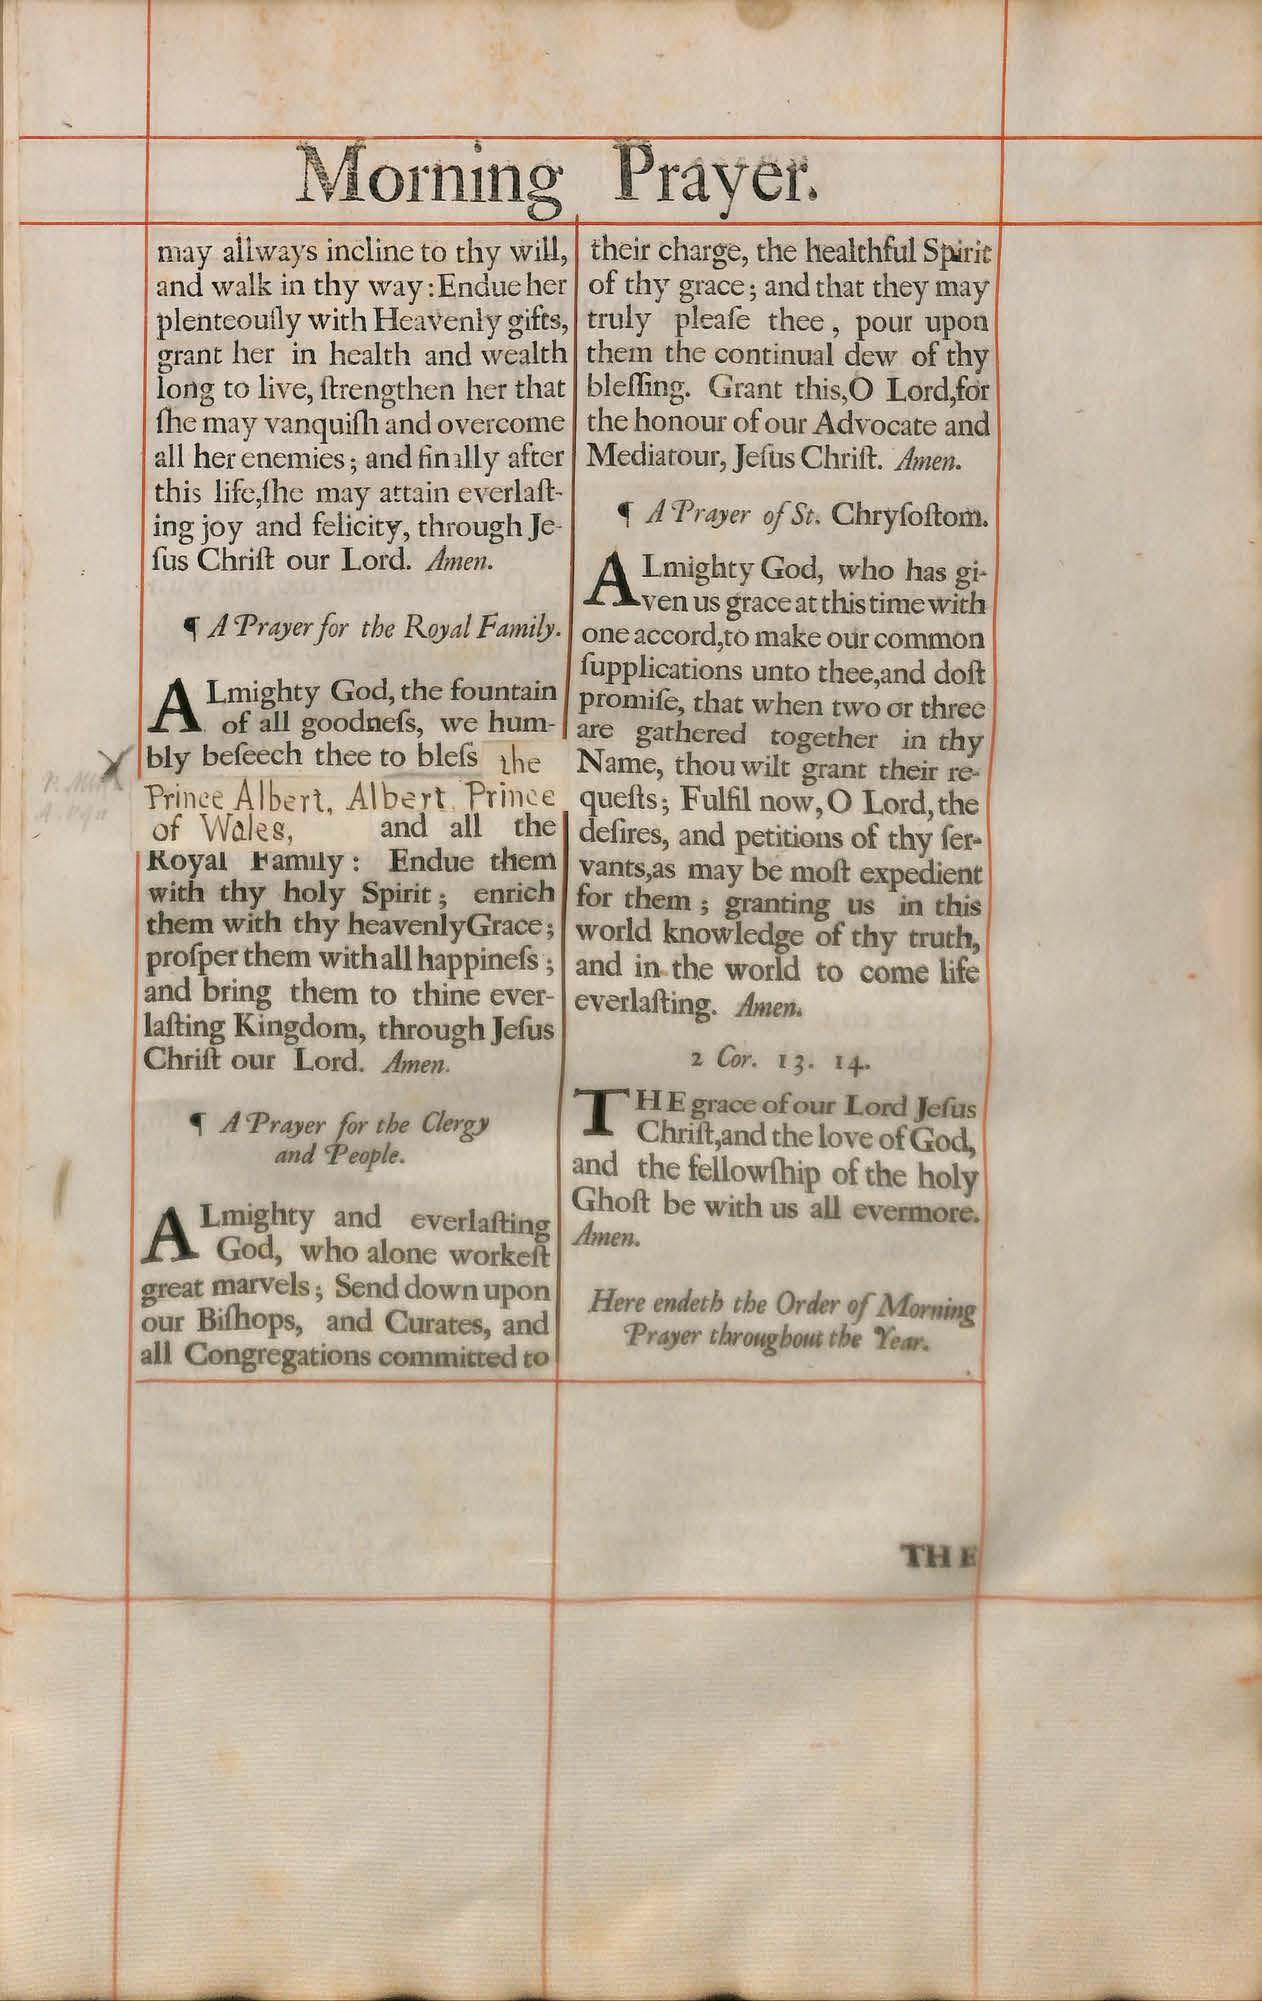 Morning Prayer.
may allways incline to thy will,
and walk in thy way: Endue her
plenteouſly with Heavenly gifts,
grant her in health and wealth
long to live, ſtrengthen her that
ſhe may vanquiſh and overcome
all her enemies; and finally after
this life, ſhe may attain everlaſt-
ing joy and felicity, through Je-
ſus Chriſt our Lord. Amen.
¶ A Prayer for the Royal Family.
ALmighty God, the fountain
of all goodneſs, we hum-
bly beſeech thee to bleſs the
Prince Albert, Albert Prince
of Wales, and all the
Royal Family: Endue them
with thy holy Spirit; enrich
them with thy heavenly Grace;
proſper them with all happineſs;
and bring them to thine ever-
laſting Kingdom, through Jeſus
Chriſt our Lord. Amen.
¶ A Prayer for the Clergy
and People.
ALmighty and everlaſting
God, who alone workeſt
great marvels; Send down upon
our Biſhops, and Curates, and
all Congregations committed to
their charge, the healthful Spirit
of thy grace; and that they may
truly pleaſe thee, pour upon
them the continual dew of thy
bleſſing. Grant this, O Lord, for
the honour of our Advocate and
Mediatour, Jeſus Chriſt. Amen.
¶ A Prayer of St. Chryſoſtom.
ALmighty God, who has gi-
ven us grace at this time with
one accord, to make our common
ſupplications unto thee, and doſt
promiſe, that when two or three
are gathered together in thy
Name, thou wilt grant their re-
queſts; Fulfil now, O Lord, the
deſires, and petitions of thy ſer-
vants, as may be moſt expedient
for them; granting us in this
world knowledge of thy truth,
and in the world to come life
everlaſting. Amen.
2 Cor. 13. 14.
THE grace of our Lord Jeſus
Chriſt, and the love of God,
and the fellowſhip of the holy
Ghoſt be with us all evermore.
Amen.
Here endeth the Order of Morning
Prayer throughout the Year.
THE